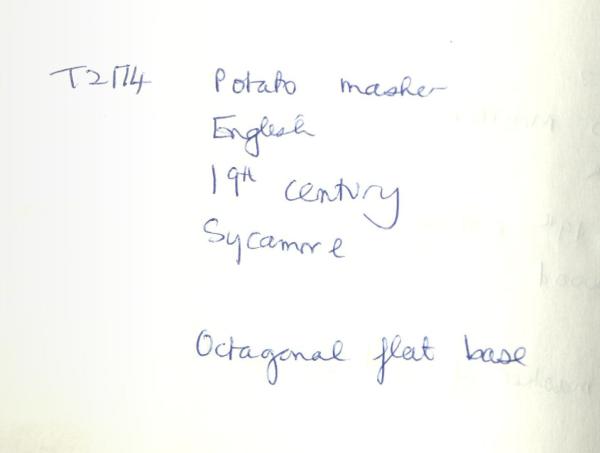 T2174 Potato masher
English
19th century
Sycamore
Octagonal flat base